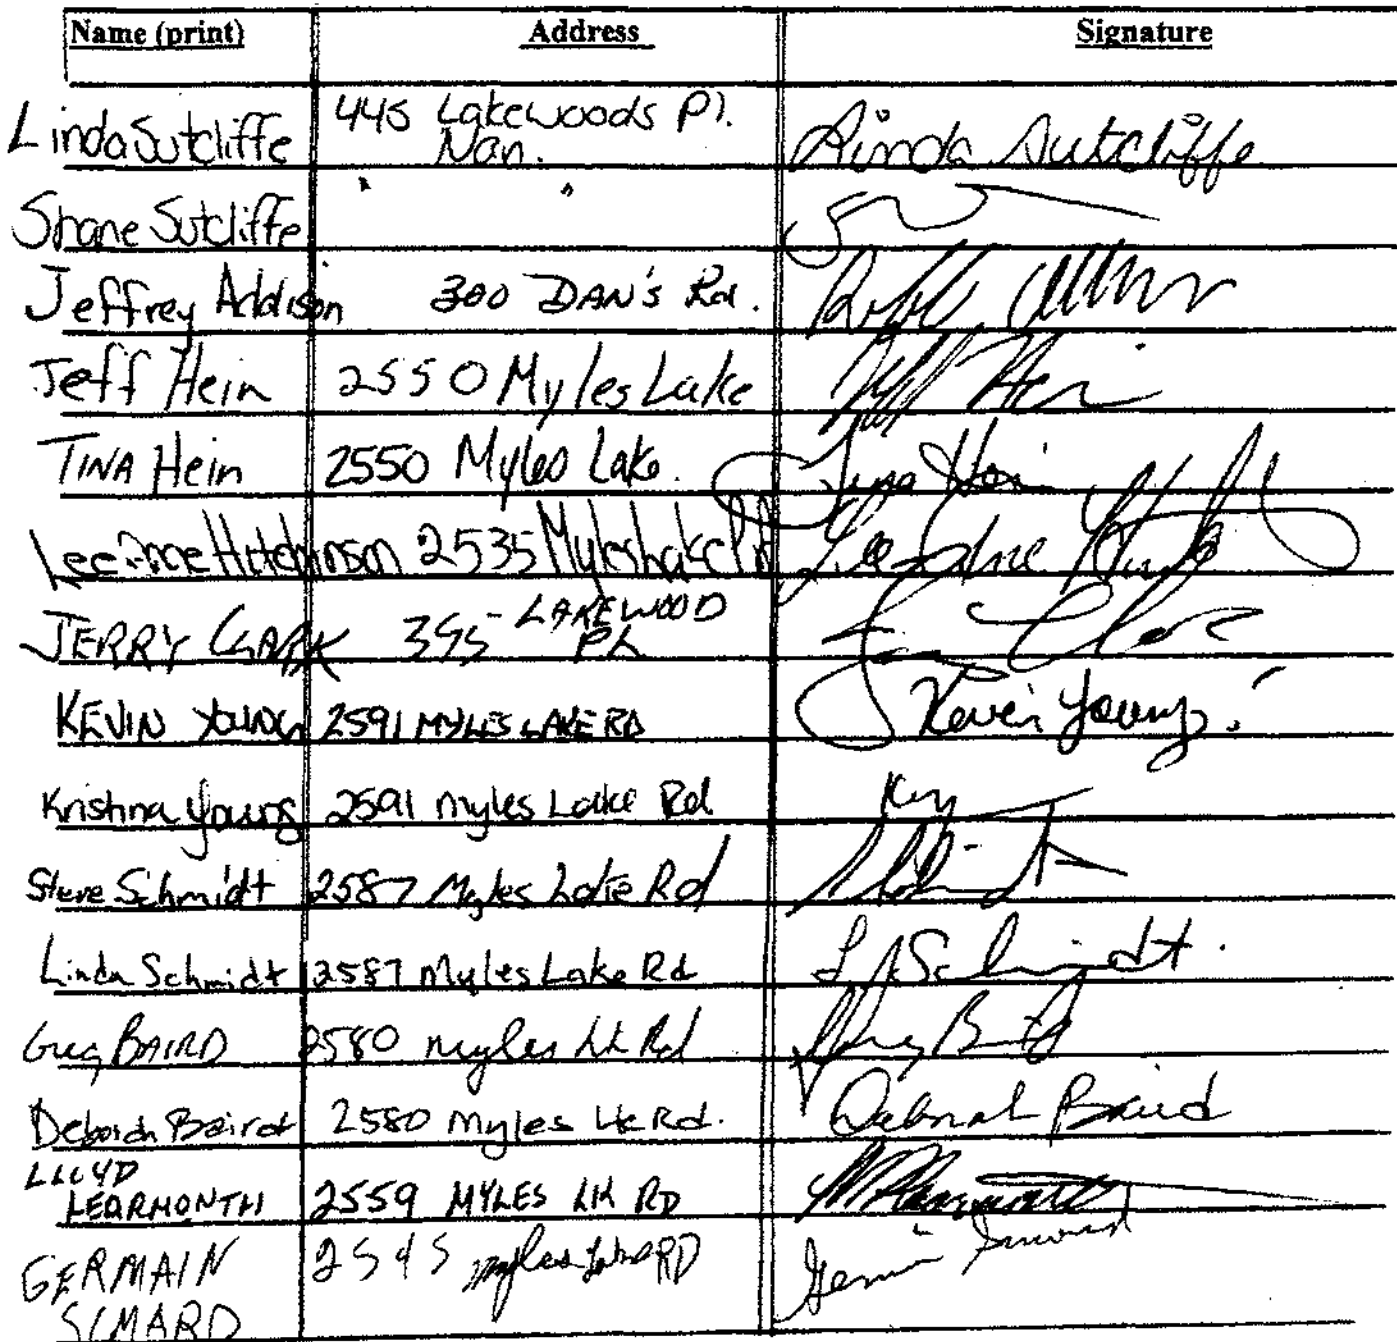 Name (print) Address Signature
Linda Sutcliffe 445 Lakewoods Pl. Nan. Linda Sutcliffe
Shane Sutcliffe " "
Jeffrey Addison 300 DAN'S Rd.
Jeff Hein 2550 Myles Lake Jeff Hein
TINA Hein 2550 Myles Lake. Tina Hein
LeeAnne Hutchinson 2535 Myles Lake Rd LeeAnne
JERRY CLARK 395 LAKEWOOD PL
KEVIN YOUNG 2591 MYLES LAKE RD Kevin Young
Krishna Young 2591 Myles Lake Rd
Steve Schmidt 2587 Myles Lake Rd
Linda Schmidt 2587 Myles Lake Rd L Schmidt
Greg BAIRD 2580 Myles Lk Rd Greg Baird
Deborah Baird 2580 Myles Lk Rd. Deborah Baird
LLOYD
LEARMONTH 2559 MYLES LK RD
GERMAIN 2545 Myles Lake RD Germain Simard
SIMARD